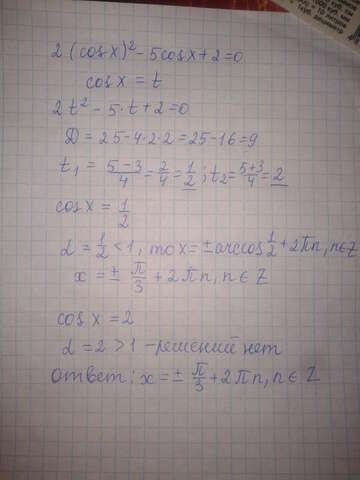 2(cosx)² - 5cosx + 2 = 0
cosx = t
2t² - 5·t + 2 = 0
D = 25 - 4·2·2 = 25 - 16 = 9
t₁ = (5-3)/4 = 2/4 = 1/2 ; t₂ = (5+3)/4 = 2
cosx = 1/2
α = 1/2 < 1, то x = ± arccos 1/2 + 2πn, n∈Z
x = ± π/3 + 2πn, n ∈ Z
cosx = 2
α = 2 > 1 - решений нет
ответ: x = ± π/3 + 2πn, n ∈ Z